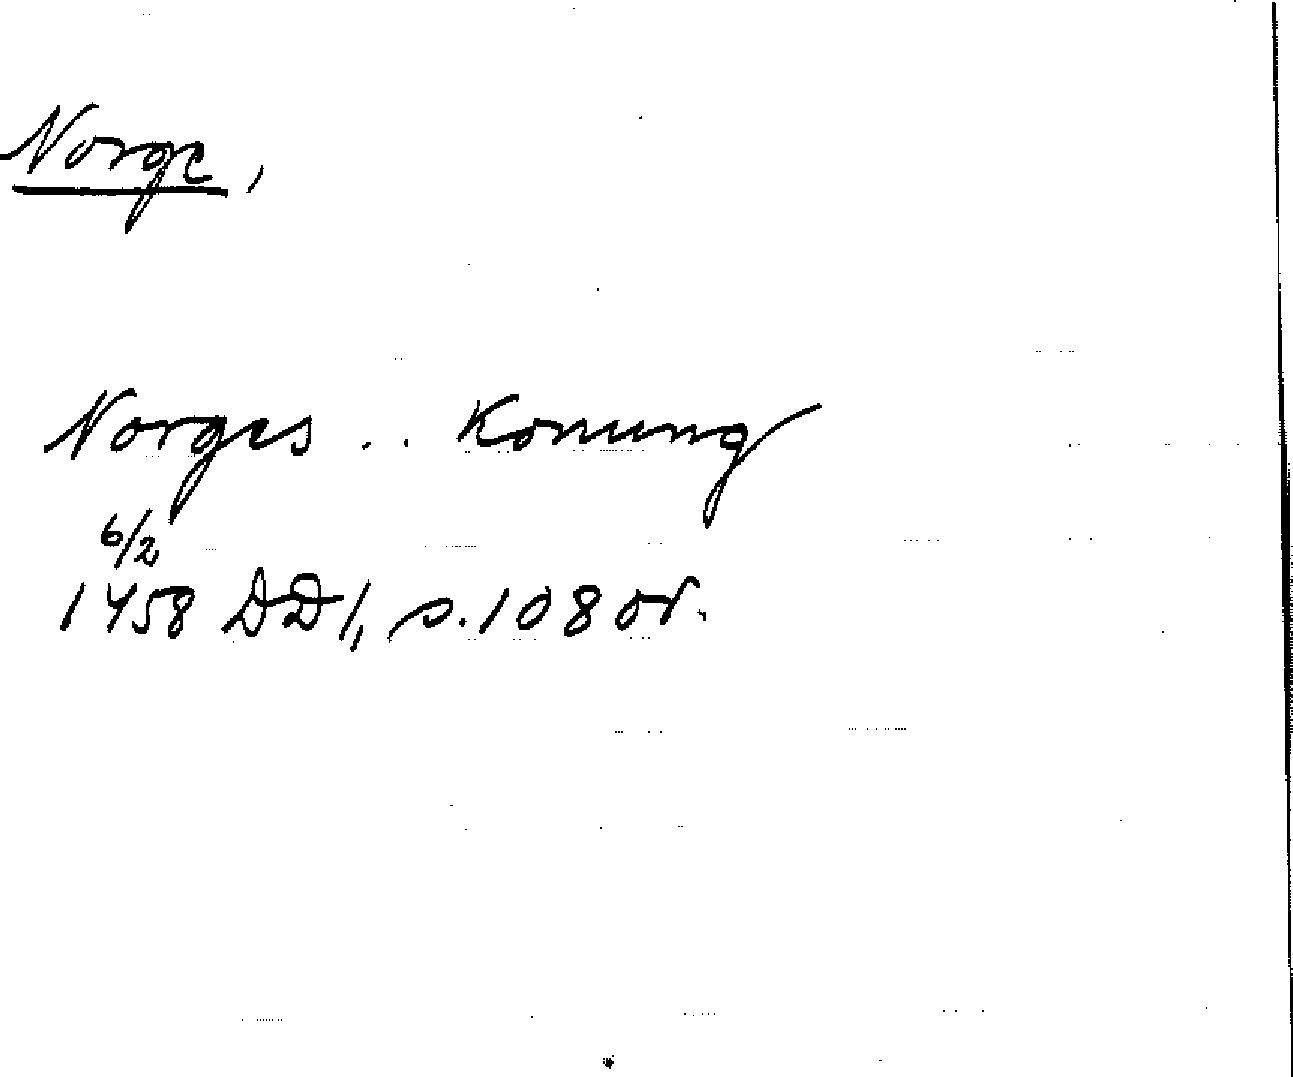 Norge,
Norges .. Konung
6/2
1458 DD1, s. 108 or.